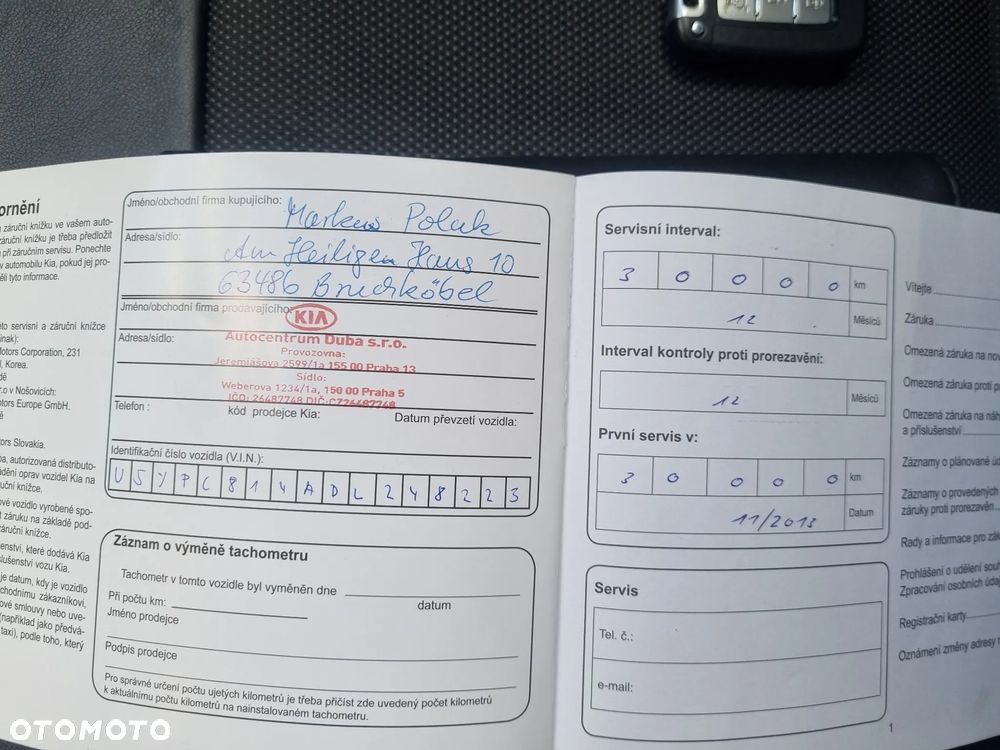 ornění
záruční knížku ve vašem auto-
záruční knížku je třeba předložit
při záručním servisu. Ponechte
v automobilu Kia, pokud jej pro-
ěli tyto informace.
to servisní a záruční knížce
inak):
Motors Corporation, 231
l, Korea.
dě
r.o v Nošovicích:
otors Europe GmbH.
ě
otors Slovakia.
ba, autorizovaná distributo-
ádění oprav vozidel Kia na
ruční knížce.
ové vozidlo vyrobené spo-
t záruku na základě pod-
záruční knížce.
šenství, které dodává Kia
slušenství vozu Kia.
je datum, kdy je vozidlo
chodnímu zákazníkovi,
ové smlouvy nebo uve-
(například jako předvá-
taxi), podle toho, který
Jméno/obchodní firma kupujícího: Markus Polak
Adresa/sídlo: Am Heiligen Haus 10
63486 Bruchköbel
Jméno/obchodní firma prodávajícího:
KIA
Adresa/sídlo: Autocentrum Duba s.r.o.
Provozovna:
Jeremiášova 2599/1a 155 00 Praha 13
Sídlo:
Weberova 1234/1a, 150 00 Praha 5
IČO: 26487748 DIČ:CZ26487748
Telefon : kód prodejce Kia: Datum převzetí vozidla:
Identifikační číslo vozidla (V.I.N.):
U5YPC814ADL248223
Záznam o výměně tachometru
Tachometr v tomto vozidle byl vyměněn dne
datum
Při počtu km:
Jméno prodejce
Podpis prodejce
Pro správné určení počtu ujetých kilometrů je třeba přičíst zde uvedený počet kilometrů
k aktuálnímu počtu kilometrů na nainstalovaném tachometru.
Servisní interval:
3 0 0 0 0 km
12 Měsíců
Interval kontroly proti prorezavění:
12 Měsíců
První servis v:
3 0 0 0 0 km
11/2013 Datum
Servis
Tel. č.:
e-mail:
1
Vítejte
Záruka
Omezená záruka na nov
Omezená záruka proti p
Omezená záruka na náh
a příslušenství
Záznamy o plánované úd
Záznamy o provedených
záruky proti prorezavěn
Rady a informace pro zák
Prohlášení o udělení souh
Zpracování osobních úda
Registrační karty
Oznámení změny adresy n
OTOMOTO